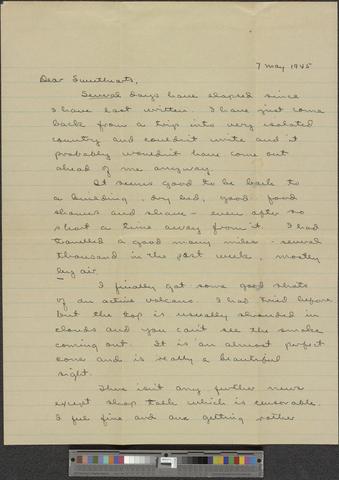 7 May 1945
Dear Sweethearts,
Several days have elapsed since
I have last written. I have just come
back from a trip into very isolated
country and couldn't write and it
probably wouldn't have come out
ahead of me anyway.
It seems good to be back to
a building, dry bed, good food
showers and shave - even after so
short a time away from it. I had
travelled a good many miles - several
thousand in the past week, mostly
by air.
I finally got some good shots
of an active volcano. I had tried before
but the top is usually shrouded in
clouds and you can't see the smoke
coming out. It is an almost perfect
cone and is really a beautiful
sight.
There isn't any further news
except shop talk which is censorable.
I feel fine and am getting rather